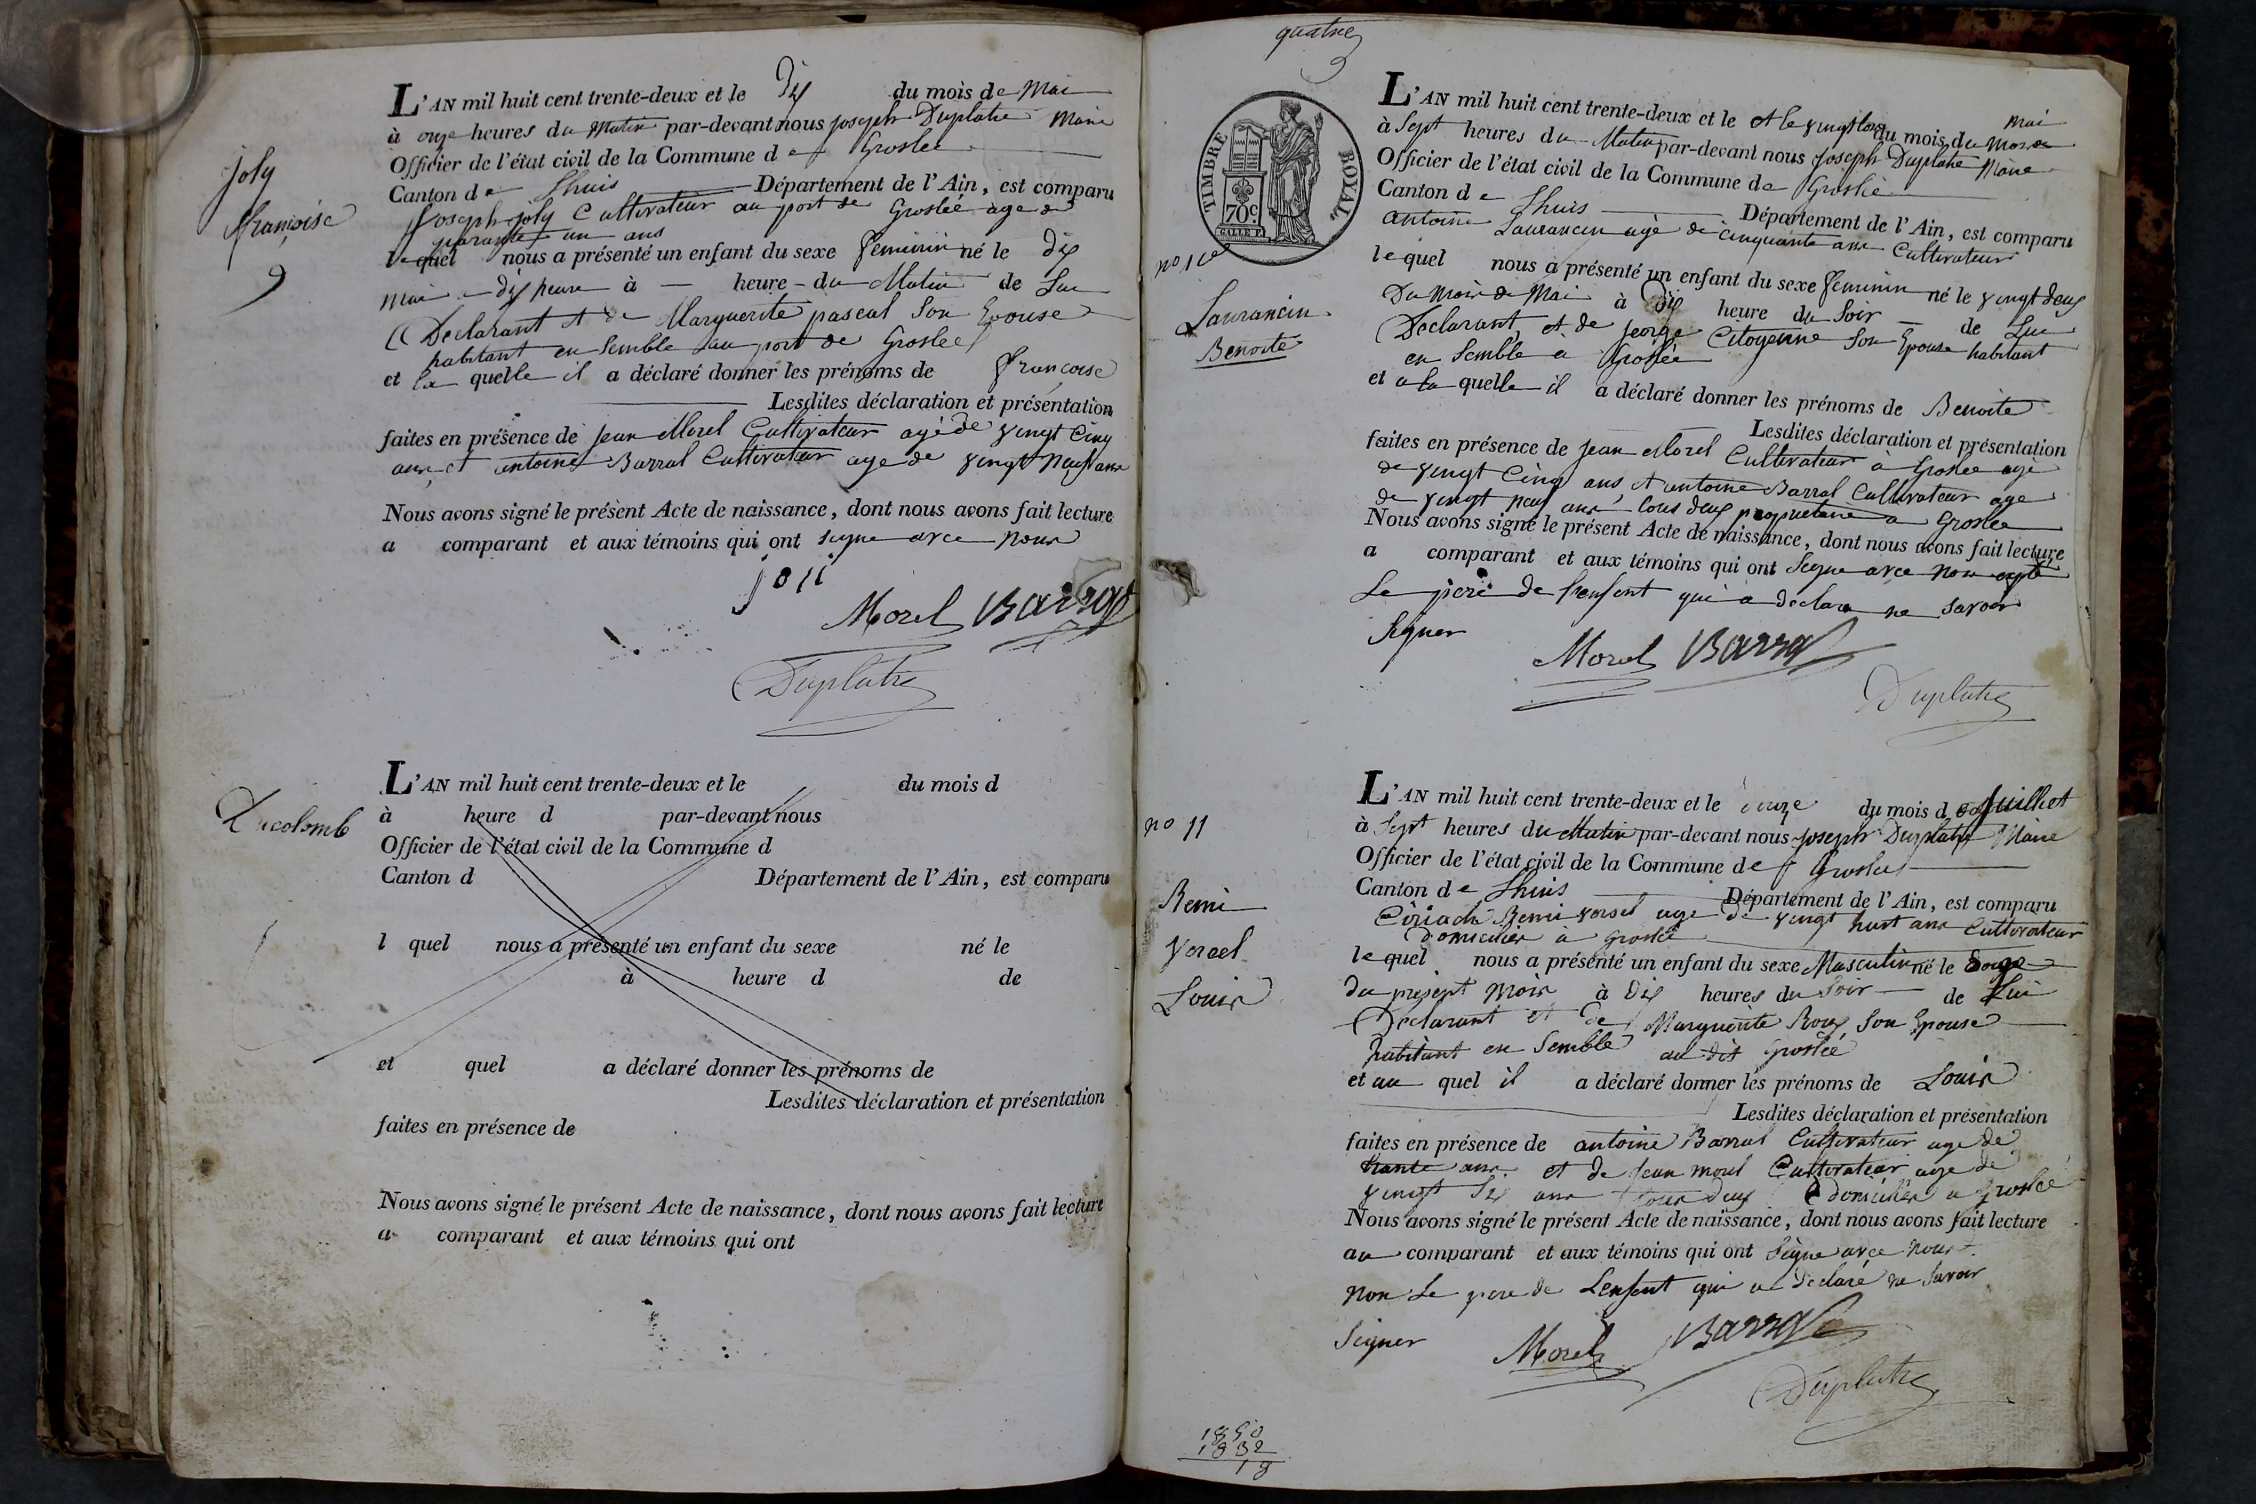 joly
françoise
9
L'AN mil huit cent trente-deux et le Dix du mois de Mai
à onze heures du Matin par-devant nous joseph Duplatre Maire
Officier de l'état civil de la Commune de Groslée
Canton de Lhuis Département de l'Ain, est comparu
Joseph joly Cultivateur au port de Groslée age de
quarante un ans
lequel nous a présenté un enfant du sexe feminin né le Dix
Mai a Dix heure à heure du Matin de Lui
Declarant et de Marguerite pascal Son Epouse
habitant en Semble au port de Groslée
et la quelle il a déclaré donner les prénoms de françoise
Lesdites déclaration et présentation
faites en présence de jean Morel Cultivateur agé de vingt Cinq
ans et antoine Barral Cultivateur age de vingt Neuf ans
Nous avons signé le présent Acte de naissance, dont nous avons fait lecture
a comparant et aux témoins qui ont signe avec nous
joli
Morel Barral
Duplatre
Ducolomb
L'AN mil huit cent trente-deux et le du mois d
à heure d par-devant nous
Officier de l'état civil de la Commune d
Canton d Département de l'Ain, est comparu
l quel nous a présenté un enfant du sexe né le
à heure d de
et quel a déclaré donner les prénoms de
Lesdites déclaration et présentation
faites en présence de
Nous avons signé le présent Acte de naissance, dont nous avons fait lecture
a comparant et aux témoins qui ont
quatre
TIMBRE ROYAL
70 c.
no 10
Laurancin
Benoite
L'AN mil huit cent trente-deux et le et le vingt trois du mois du Mois de Mai
à Sept heures du Matin par-devant nous Joseph Duplatre Maire
Officier de l'état civil de la Commune de Groslée
Canton de Lhuis Département de l'Ain, est comparu
antoine Laurancin agé de cinquante ans Cultivateur
lequel nous a présenté un enfant du sexe feminin né le vingt deux
Du Mois de Mai à Dix heure du Soir de Lui
Declarant et de jeorge Citoyenne Son Epouse habitant
en Semble a Groslée
et a la quelle il a déclaré donner les prénoms de Benoite
Lesdites déclaration et présentation
faites en présence de jean Morel Cultivateur à Groslée agé
de vingt Cinq ans et antoine Barral Cultivateur age
de vingt neuf ans tous deux propriétaire a Groslée
Nous avons signé le présent Acte de naissance, dont nous avons fait lecture
a comparant et aux témoins qui ont Signe avec nous
Le pere de Lenfent qui a declare ne savoir
Signer
Morel Barral
Duplatre
no 11
Remi
Vorcel
Louis
L'AN mil huit cent trente-deux et le du mois de Juilliet
à Sept heures du Matin par-devant nous Joseph Duplatre Maire
Officier de l'état civil de la Commune de Groslée
Canton de Lhuis Département de l'Ain, est comparu
Remi vorsel age de vingt huit ans Cultivateur
domicilier à Groslée
lequel nous a présenté un enfant du sexe Masculin né le Douze
du present Mois à Dix heures du Soir de Lui
Declarant et de Marguerite Roux Son Epouse
habitant en Semble au dit Groslée
et au quel il a déclaré donner les prénoms de Louis
Lesdites déclaration et présentation
faites en présence de antoine Barral Cultivateur age de
trante ans et de Jean morel Cultivateur age de
vingt Six ans tous deux domicilier a Groslée
Nous avons signé le présent Acte de naissance, dont nous avons fait lecture
au comparant et aux témoins qui ont Signe avec nous
non Le pere de Lenfent qui a declaré ne Savoir
Signer
Morel Barral
Duplatre
1850
1832
18